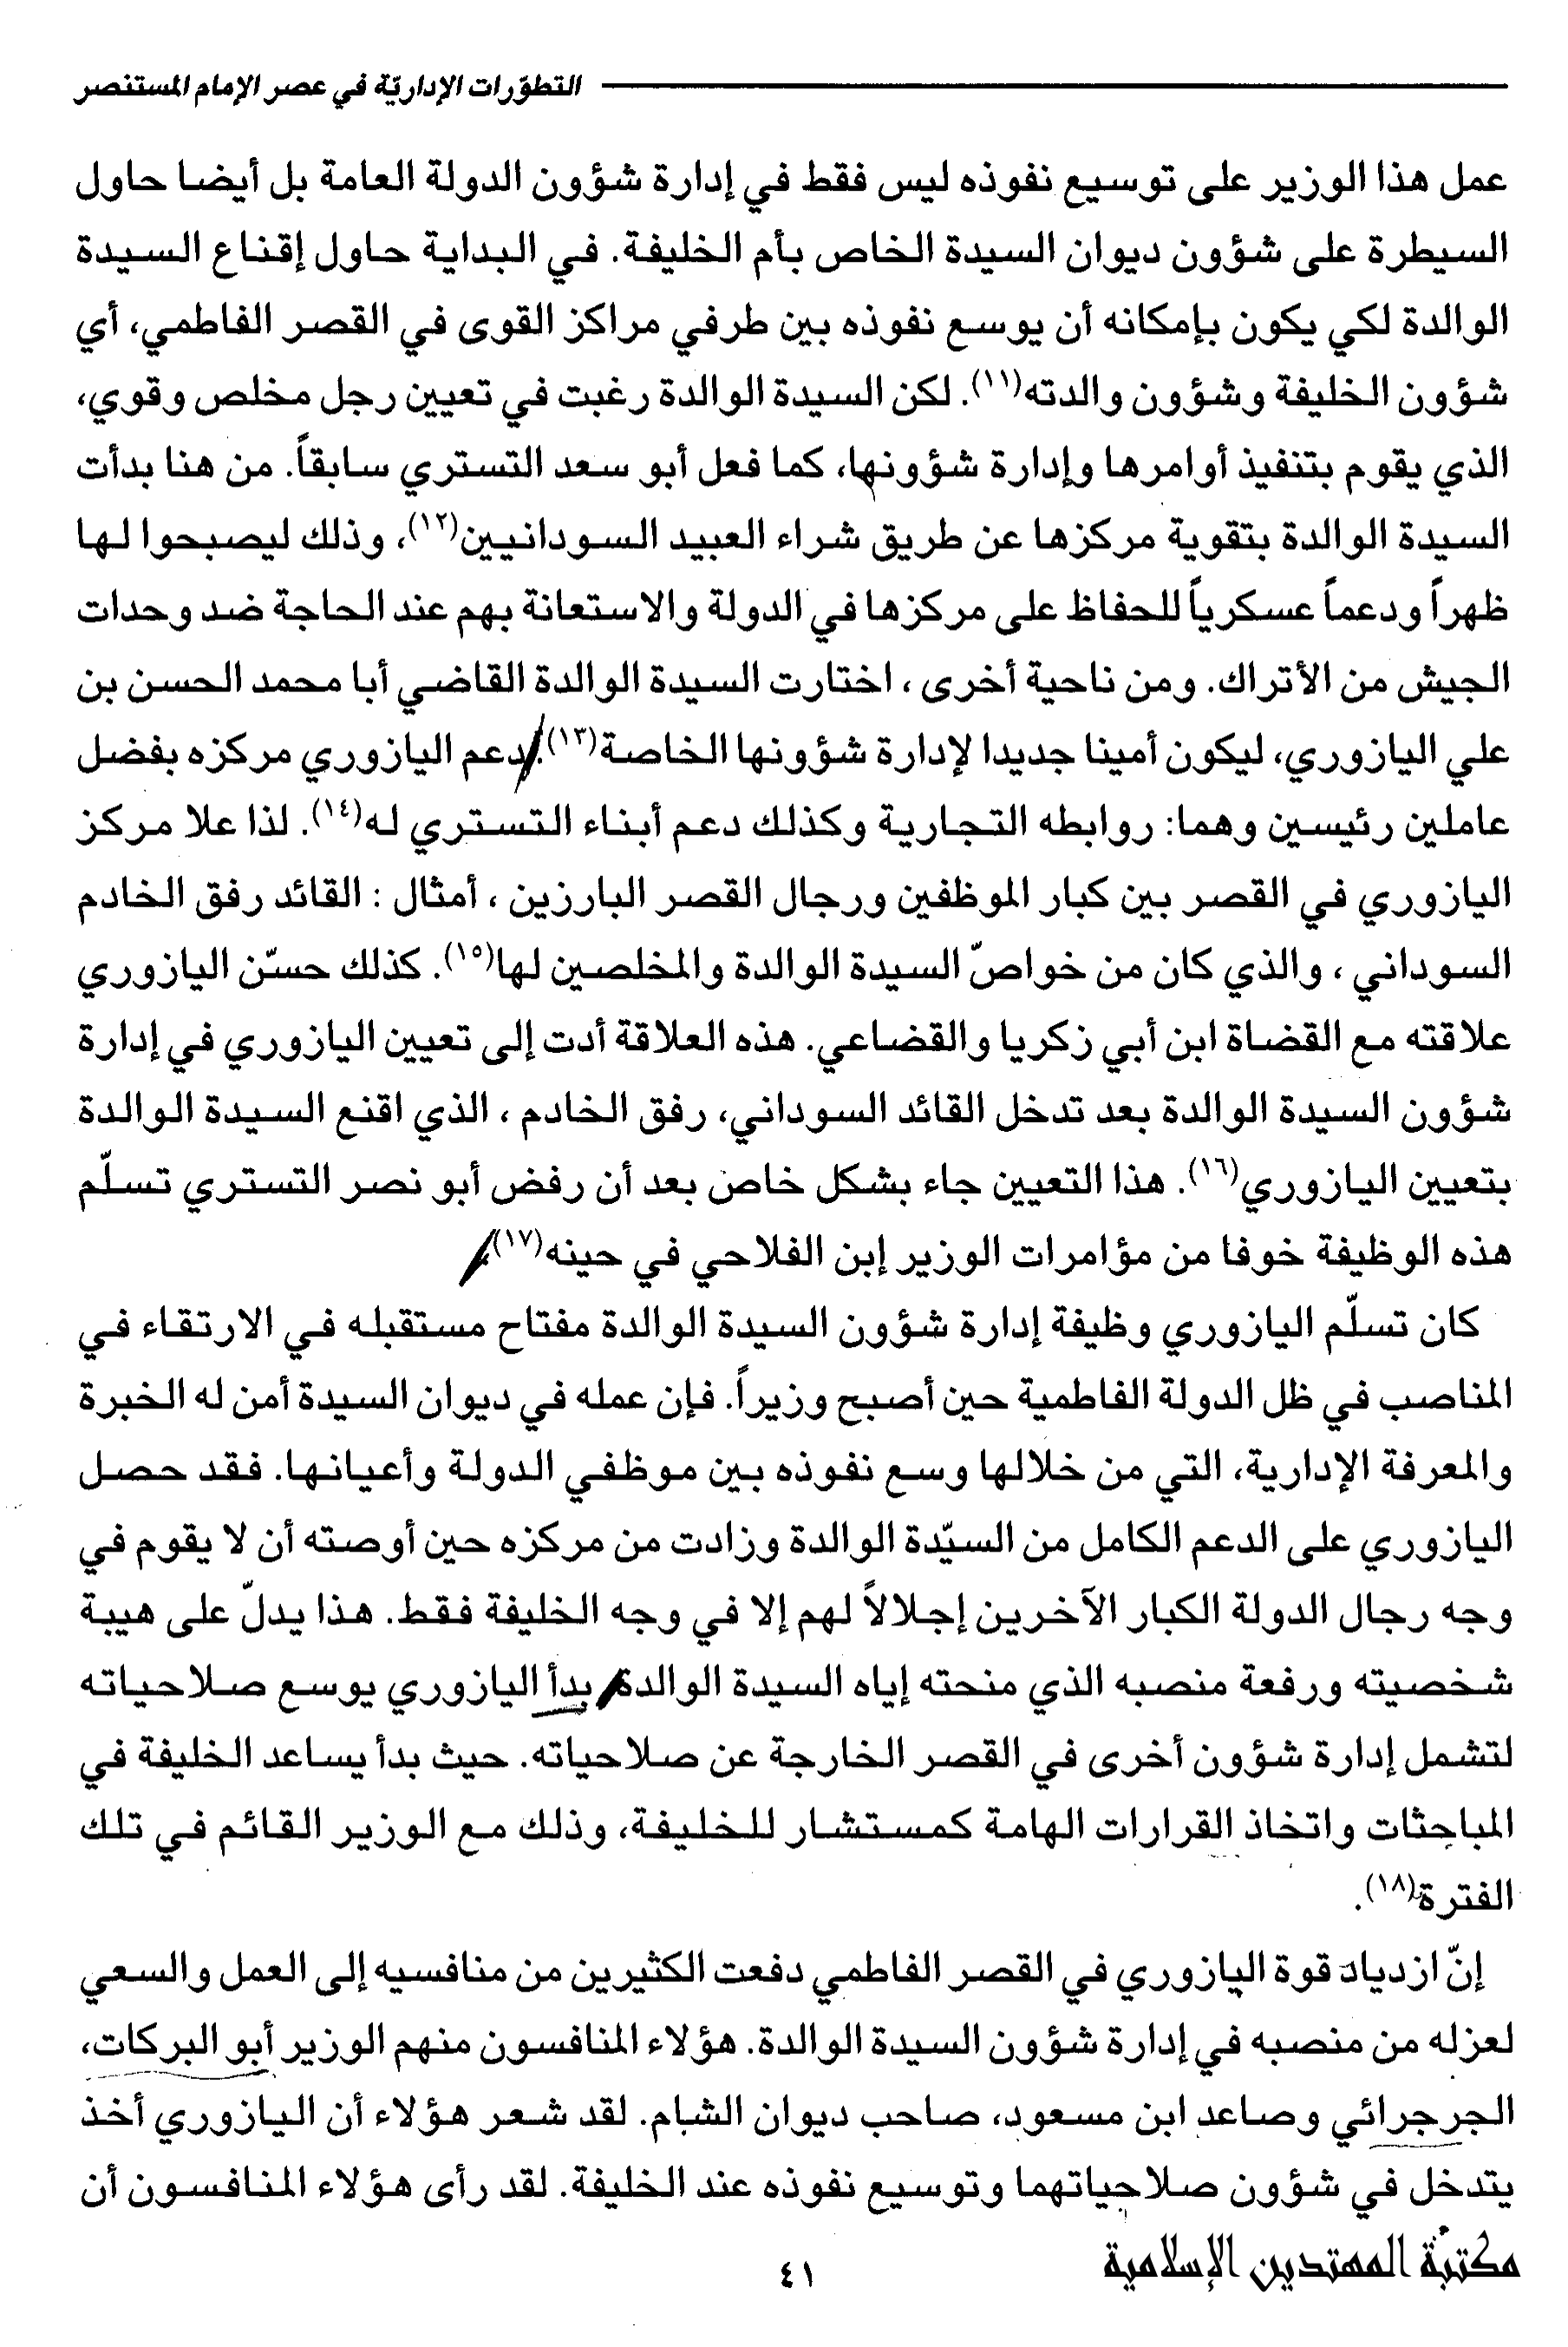 التطوّرات الإداريّة في عصر الإمام المستنصر
عمل هذا الوزير على توسيع نفوذه ليس فقط في إدارة شؤون الدولة العامة بل أيضا حاول
السيطرة على شؤون ديوان السيدة الخاص بأم الخليفة. في البداية حاول إقناع السيدة
الوالدة لكي يكون بإمكانه أن يوسع نفوذه بين طرفي مراكز القوى في القصر الفاطمي، أي
شؤون الخليفة وشؤون والدته(١١). لكن السيدة الوالدة رغبت في تعيين رجل مخلص وقوي،
الذي يقوم بتنفيذ أوامرها وإدارة شؤونها، كما فعل أبو سعد التستري سابقاً. من هنا بدأت
السيدة الوالدة بتقوية مركزها عن طريق شراء العبيد السودانيين(١٢)، وذلك ليصبحوا لها
ظهراً ودعماً عسكرياً للحفاظ على مركزها في الدولة والاستعانة بهم عند الحاجة ضد وحدات
الجيش من الأتراك. ومن ناحية أخرى ، اختارت السيدة الوالدة القاضي أبا محمد الحسن بن
علي اليازوري، ليكون أمينا جديدا لإدارة شؤونها الخاصة(١٣). دعم اليازوري مركزه بفضل
عاملين رئيسين وهما: روابطه التجارية وكذلك دعم أبناء التستري له(١٤). لذا علا مركز
اليازوري في القصر بين كبار الموظفين ورجال القصر البارزين ، أمثال : القائد رفق الخادم
السوداني ، والذي كان من خواصّ السيدة الوالدة والمخلصين لها(١٥). كذلك حسّن اليازوري
علاقته مع القضاة ابن أبي زكريا والقضاعي. هذه العلاقة أدت إلى تعيين اليازوري في إدارة
شؤون السيدة الوالدة بعد تدخل القائد السوداني، رفق الخادم ، الذي اقنع السيدة الوالدة
بتعيين اليازوري(١٦). هذا التعيين جاء بشكل خاص بعد أن رفض أبو نصر التستري تسلّم
هذه الوظيفة خوفا من مؤامرات الوزير إبن الفلاحي في حينه(١٧).
كان تسلّم اليازوري وظيفة إدارة شؤون السيدة الوالدة مفتاح مستقبله في الارتقاء في
المناصب في ظل الدولة الفاطمية حين أصبح وزيراً. فإن عمله في ديوان السيدة أمن له الخبرة
والمعرفة الإدارية، التي من خلالها وسع نفوذه بين موظفي الدولة وأعيانها. فقد حصل
اليازوري على الدعم الكامل من السيّدة الوالدة وزادت من مركزه حين أوصته أن لا يقوم في
وجه رجال الدولة الكبار الآخرين إجلالاً لهم إلا في وجه الخليفة فقط. هذا يدلّ على هيبة
شخصيته ورفعة منصبه الذي منحته إياه السيدة الوالدة. بدأ اليازوري يوسع صلاحياته
لتشمل إدارة شؤون أخرى في القصر الخارجة عن صلاحياته. حيث بدأ يساعد الخليفة في
المباحثات واتخاذ القرارات الهامة كمستشار للخليفة، وذلك مع الوزير القائم في تلك
الفترة(١٨).
إنّ ازدياد قوة اليازوري في القصر الفاطمي دفعت الكثيرين من منافسيه إلى العمل والسعي
لعزله من منصبه في إدارة شؤون السيدة الوالدة. هؤلاء المنافسون منهم الوزير أبو البركات،
الجرجرائي وصاعد ابن مسعود، صاحب ديوان الشام. لقد شعر هؤلاء أن اليازوري أخذ
يتدخل في شؤون صلاحياتهما وتوسيع نفوذه عند الخليفة. لقد رأى هؤلاء المنافسون أن
٤١
مكتبة المهتدين الإسلامية